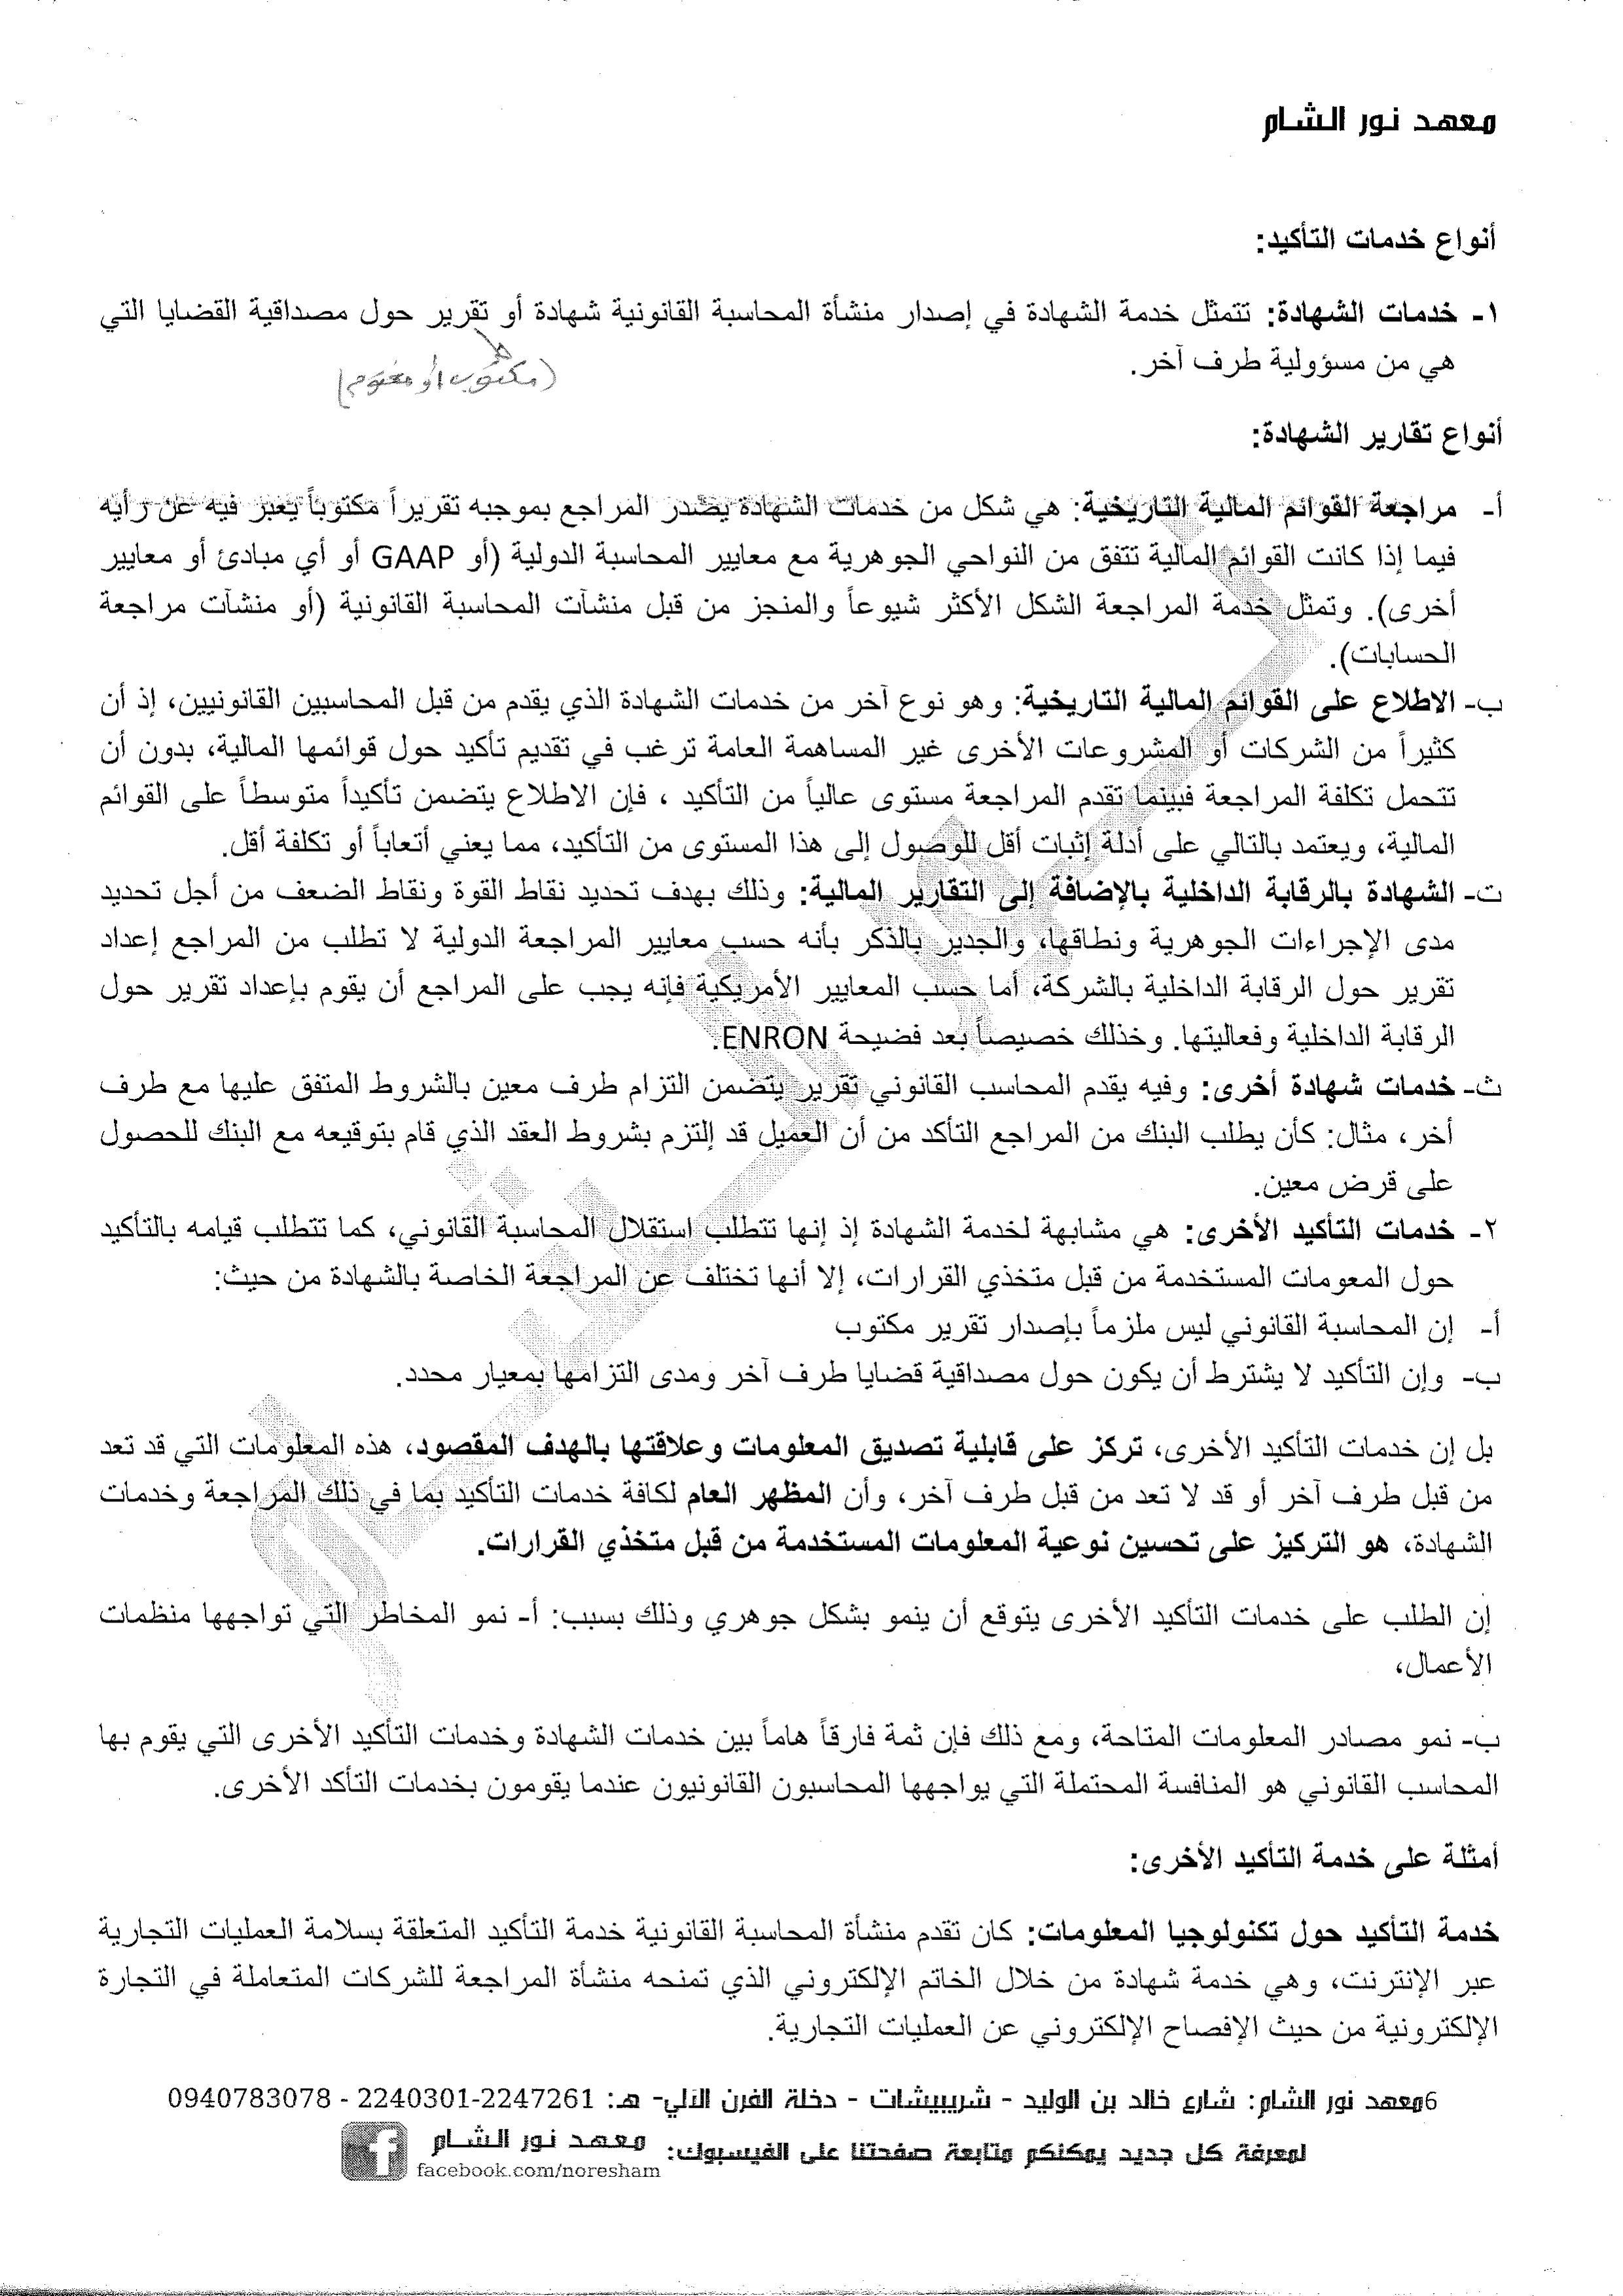 معهد نور الشام
أنواع خدمات التأكيد:
١- خدمات الشهادة: تتمثل خدمة الشهادة في إصدار منشأة المحاسبة القانونية شهادة أو تقرير حول مصداقية القضايا التي
هي من مسؤولية طرف آخر.
(مكتوب أو مختوم)
أنواع تقارير الشهادة:
أ- مراجعة القوائم المالية التاريخية: هي شكل من خدمات الشهادة يصدر المراجع بموجبه تقريراً مكتوباً يعبر فيه عن رأيه
فيما إذا كانت القوائم المالية تتفق من النواحي الجوهرية مع معايير المحاسبة الدولية (أو GAAP أو أي مبادئ أو معايير
أخرى). وتمثل خدمة المراجعة الشكل الأكثر شيوعاً والمنجز من قبل منشآت المحاسبة القانونية (أو منشآت مراجعة
الحسابات).
ب- الاطلاع على القوائم المالية التاريخية: وهو نوع آخر من خدمات الشهادة الذي يقدم من قبل المحاسبين القانونيين، إذ أن
كثيراً من الشركات أو المشروعات الأخرى غير المساهمة العامة ترغب في تقديم تأكيد حول قوائمها المالية، بدون أن
تتحمل تكلفة المراجعة فبينما تقدم المراجعة مستوى عالياً من التأكيد ، فإن الاطلاع يتضمن تأكيداً متوسطاً على القوائم
المالية، ويعتمد بالتالي على أدلة إثبات أقل للوصول إلى هذا المستوى من التأكيد، مما يعني أتعاباً أو تكلفة أقل.
ت- الشهادة بالرقابة الداخلية بالإضافة إلى التقارير المالية: وذلك بهدف تحديد نقاط القوة ونقاط الضعف من أجل تحديد
مدى الإجراءات الجوهرية ونطاقها، والجدير بالذكر بأنه حسب معايير المراجعة الدولية لا تطلب من المراجع إعداد
تقرير حول الرقابة الداخلية بالشركة، أما حسب المعايير الأمريكية فإنه يجب على المراجع أن يقوم بإعداد تقرير حول
الرقابة الداخلية وفعاليتها. وخذلك خصيصاً بعد فضيحة ENRON.
ث- خدمات شهادة أخرى: وفيه يقدم المحاسب القانوني تقرير يتضمن التزام طرف معين بالشروط المتفق عليها مع طرف
أخر، مثال: كأن يطلب البنك من المراجع التأكد من أن العميل قد إلتزم بشروط العقد الذي قام بتوقيعه مع البنك للحصول
على قرض معين.
٢- خدمات التأكيد الأخرى: هي مشابهة لخدمة الشهادة إذ إنها تتطلب استقلال المحاسبة القانوني، كما تتطلب قيامه بالتأكيد
حول المعومات المستخدمة من قبل متخذي القرارات، إلا أنها تختلف عن المراجعة الخاصة بالشهادة من حيث:
أ- إن المحاسبة القانوني ليس ملزماً بإصدار تقرير مكتوب
ب- وإن التأكيد لا يشترط أن يكون حول مصداقية قضايا طرف آخر ومدى التزامها بمعيار محدد.
بل إن خدمات التأكيد الأخرى، تركز على قابلية تصديق المعلومات وعلاقتها بالهدف المقصود، هذه المعلومات التي قد تعد
من قبل طرف آخر أو قد لا تعد من قبل طرف آخر، وأن المظهر العام لكافة خدمات التأكيد بما في ذلك المراجعة وخدمات
الشهادة، هو التركيز على تحسين نوعية المعلومات المستخدمة من قبل متخذي القرارات.
إن الطلب على خدمات التأكيد الأخرى يتوقع أن ينمو بشكل جوهري وذلك بسبب: أ- نمو المخاطر التي تواجهها منظمات
الأعمال،
ب- نمو مصادر المعلومات المتاحة، ومع ذلك فإن ثمة فارقاً هاماً بين خدمات الشهادة وخدمات التأكيد الأخرى التي يقوم بها
المحاسب القانوني هو المنافسة المحتملة التي يواجهها المحاسبون القانونيون عندما يقومون بخدمات التأكد الأخرى.
أمثلة على خدمة التأكيد الأخرى:
خدمة التأكيد حول تكنولوجيا المعلومات: كان تقدم منشأة المحاسبة القانونية خدمة التأكيد المتعلقة بسلامة العمليات التجارية
عبر الإنترنت، وهي خدمة شهادة من خلال الخاتم الإلكتروني الذي تمنحه منشأة المراجعة للشركات المتعاملة في التجارة
الإلكترونية من حيث الإفصاح الإلكتروني عن العمليات التجارية.
6معهد نور الشام: شارع خالد بن الوليد - شريبيشات - دخلة الفرن الآلي- هـ: 2247261-2240301 - 0940783078
لمعرفة كل جديد يمكنكم متابعة صفحتنا على الفيسبوك: معهد نور الشام
facebook.com/noresham